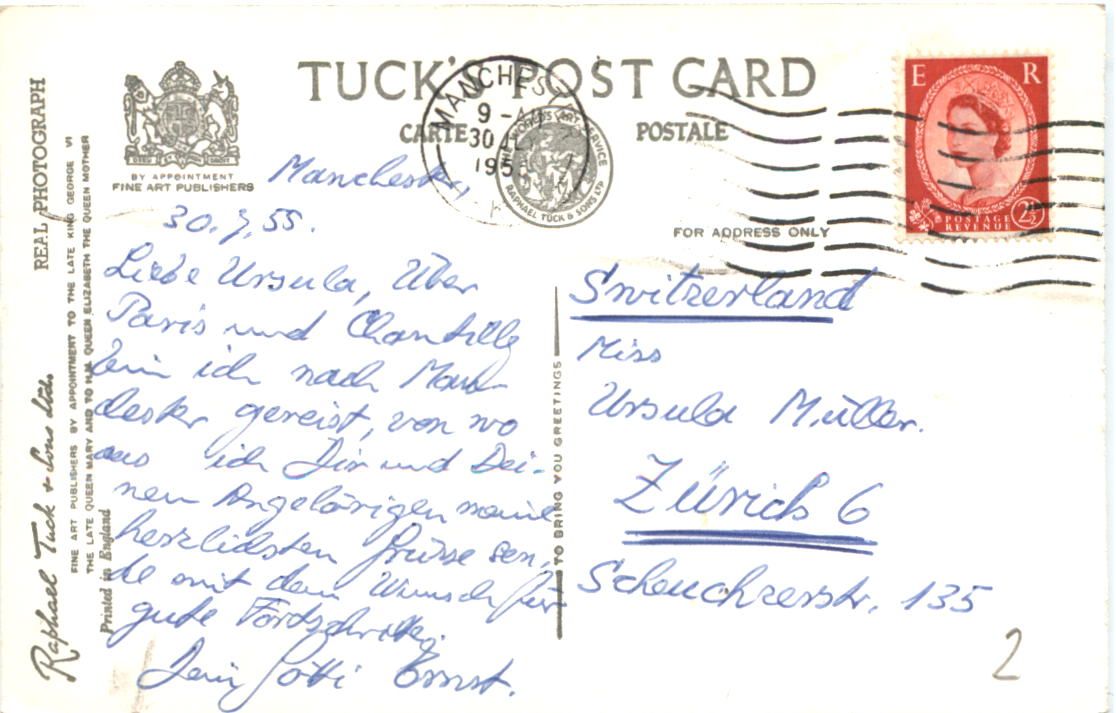 TUCK'S POST CARD
CARTE POSTALE
BY APPOINTMENT
FINE ART PUBLISHERS
MANCHES
9 - AM
30 JLY
195
WORLDS ART SERVICE
RAPHAEL TUCK & SONS LTD
E R
POSTAGE
REVENUE
2½
FOR ADDRESS ONLY
REAL PHOTOGRAPH
Raphael Tuck & Sons Ltd
FINE ART PUBLISHERS BY APPOINTMENT TO THE LATE KING GEORGE VI
THE LATE QUEEN MARY AND TO H.M. QUEEN ELIZABETH THE QUEEN MOTHER
Printed in England
Manchester,
30.7.55.
Liebe Ursula, Über
Paris und Chantilly
bin ich nach Man-
chester gereist, von wo
aus ich Dir und Dei-
nen Angehörigen meine
herzlichsten Grüsse sen-
de mit dem Wunsch für
gute Fortschritte.
Dein Götti Ernst.
TO BRING YOU GREETINGS
Switzerland
Miss
Ursula Müller.
Zürich 6
Scheuchzerstr. 135
2